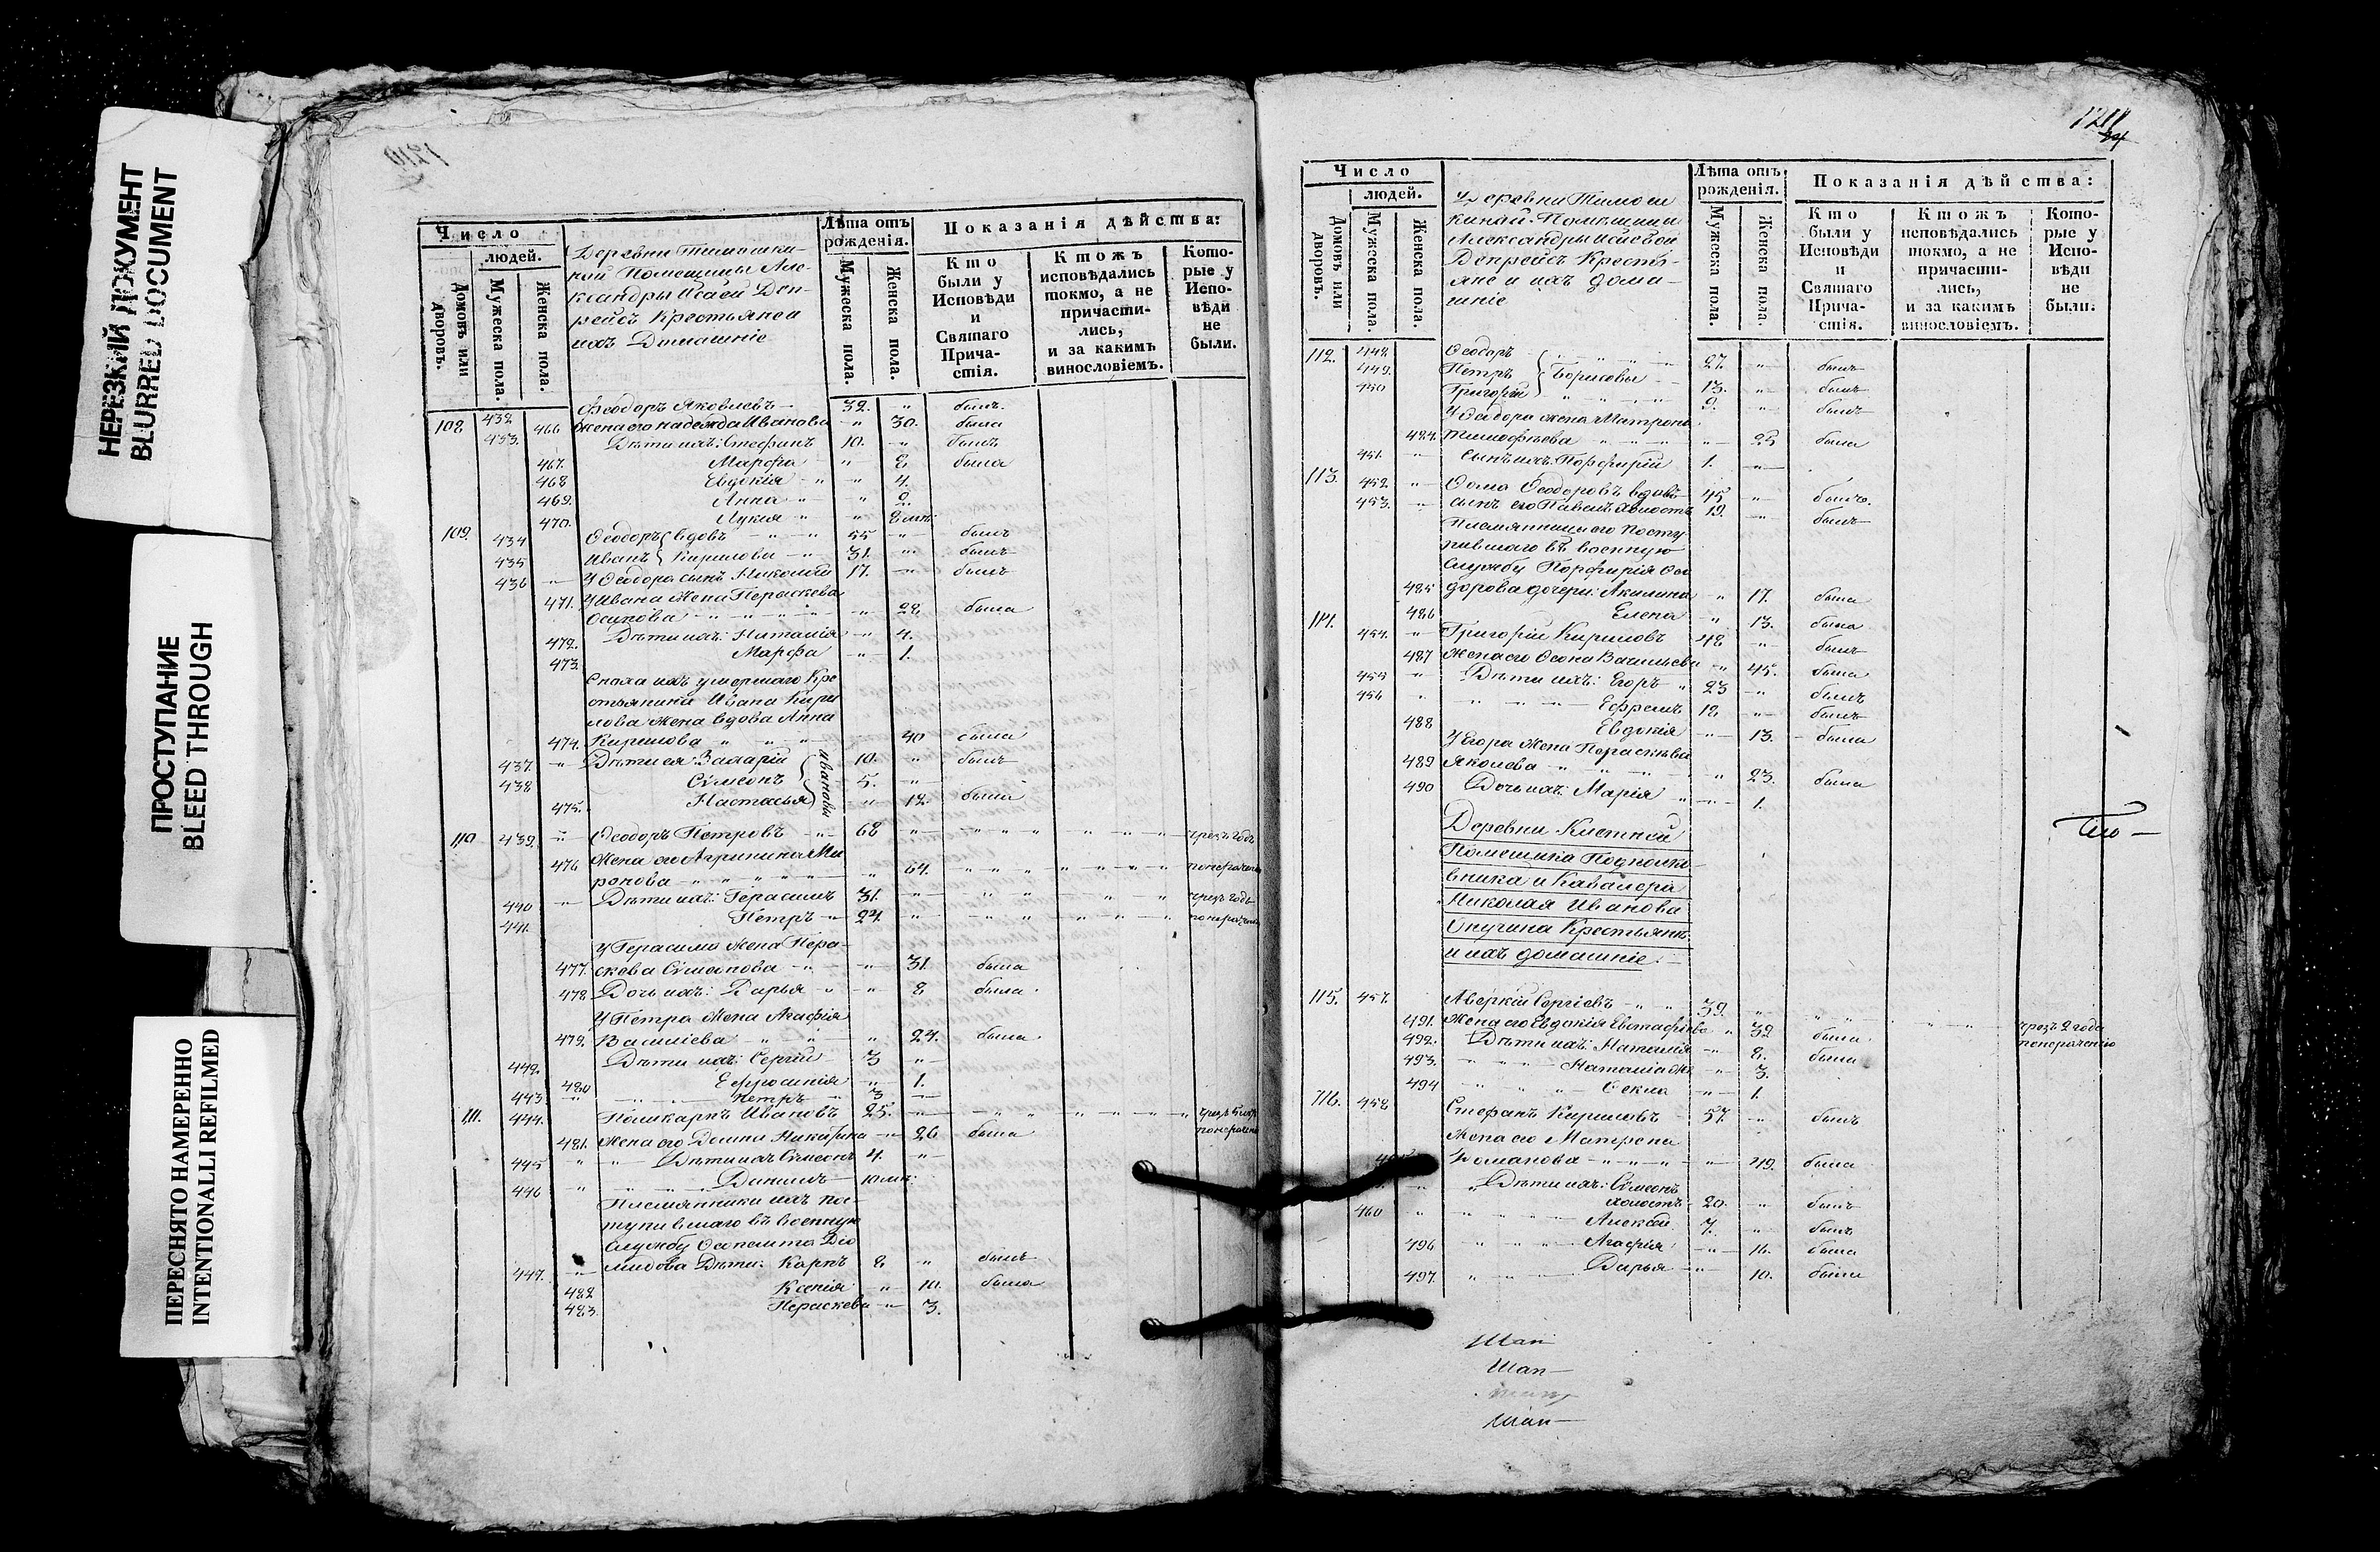 НЕРЕЗКИЙ ДОКУМЕНТ
BLURRED DOCUMENT
ПРОСТУПАНИЕ
BLEED THROUGH
ПЕРЕСНЯТО НАМЕРЕННО
INTENTIONALLI REFILMED
Число
людей.
Домовъ или дворовъ.
Мужеска пола.
Женска пола.
Деревни Тимошки-
ной Помещицы Але-
ксандры Исаей Деп-
рейсъ Крестьяне и
ихъ Домашніе
Лѣта отъ рожденія.
Мужеска пола.
Женска пола.
Показанія дѣйства:
Кто были у Исповѣди и Святаго Прича-стія.
Ктожъ исповѣдались токмо, а не причасти-лись, и за какимъ винословіемъ.
Кото-рые у Испо-вѣди не были.
108 432 Феодоръ Яковлевъ 32. " былъ.
466 Жена его Надежда Иванова " 30. была
433. Дѣти ихъ: Стефанъ 10. " былъ
467. Марфа " 8 была
468 Евдокія " " 4.
469. Анна " " 2.
470. Лукія " " 8 мѣ:
109. 434 Ѳеодоръ вдовъ " " 55 " былъ
435 Иванъ Кирилова " 31. " былъ
436 " У Ѳеодора сынъ Николай 17. " былъ
471. У Ивана жена Пераскева
Осипова " " " " " 28. была
472. Дѣти ихъ: Наталія " 4.
473. Марфа " 1.
Сноха ихъ умершаго Кре
стьянина Ивана Кири
лова жена вдова Анна
474. Кирилова " " " 40 была
437. " Дѣти ея: Захарій 10. " былъ
Ивановы
438 Сѵмеонъ 5. "
475. Настасья " 12. была
110 439. " Ѳеодоръ Петровъ " 68 " " " " " " " чрезъ годъ
476 Жена его Агрипина Ми
ронова " " " " " " 64. " " " " " " " по нераченію
440 " Дѣти ихъ: Герасимъ 31. " " " " " чрезъ годъ
441. Петръ " 24. " " " " " " " по нераченію
У Герасима жена Пера-
477. скева Сѵмеонова " " 31. была
478 Дочь ихъ: Дарья " " 8 была.
У Петра жена Агафія
479. Василіева " " " 24. была
442. Дѣти ихъ: Сергій 3 "
480 Ефросинія " 1.
443. " " " Петръ " 3 "
111. 444. Поликарпъ Ивановъ 25. " " " " " " " "
по нераченію
481. Жена его Домна Никитина " 26 была
445 " " Дѣти ихъ Сѵмеонъ 4. "
446 " " " " Даніилъ 10 мѣ:
Племянники ихъ по-
ступившаго въ военную
службу
447. " Дѣти: Карпъ 8 " былъ
482 Ксенія " 10. была
483. Пераскева " 3.
1211
Число
людей.
Домовъ или дворовъ.
Мужеска пола.
Женска пола.
Деревни Тимош
киной Помещицы
Александры Исаевой
Депрейсъ Кресть-
яне и ихъ дома-
шніе
Лѣта отъ рожденія.
Мужеска пола.
Женска пола.
Показанія дѣйства:
Кто были у Исповѣди и Святаго Прича-стія.
Ктожъ исповѣдались токмо, а не причасти-лись, и за какимъ винословіемъ.
Кото-рые у Испо-вѣди не были.
112. 448. Ѳеодоръ " " " " 27. " былъ
449. Петръ Борисовы " 13. " былъ
450 Григорій " " " " 9. " былъ
У Ѳеодора жена Матрона
484. Тимофѣева " " " " 25 была
451. " Сынъ ихъ Порфирій 1. "
113. 452. " Ѳома Ѳеодоровъ вдовъ 45 " былъ.
453. " сынъ его Павелъ холостъ 19. " былъ
Племянницы его посту
пившаго въ военную
службу Порфирія Ѳео
485 дорова дочери: Акилина " 17. была
486 Елена " 13. была
114. 454. " Григорій Кириловъ 48 " былъ
487 Жена его Ѳеона Васильева " 45. была
455 " Дѣти ихъ: Егоръ " 23 " былъ
456 " " " " Ефремъ 18 " былъ
488 Евдокія " 13. была
У Егора жена Пераскева
489 Яковлева " " " " 23. была
490 Дочь ихъ: Марія " " 1.
Деревни Клетной
Помещика Подполко-
вника и Кавалера
Николая Иванова
Крестьяне
и ихъ домашніе.
115. 457. Аверкій Сергіевъ " " 39. " " " " " чрезъ 2 года
по нераченію
491. Жена его Евдокія Евстафіева " 39. была
492. Дѣти ихъ: Наталія " 8. была
493. " " " Наталія " 3.
494 " " " Ѳекла " 1.
116. 458 Стефанъ Кириловъ 57. " былъ
Жена его Матрена
Романова " " " " 49. была
" " Дѣти ихъ: Сѵмеонъ
холостъ 20. " былъ
460 " " " " Алексѣй 7. " былъ
496 " " " Агафія " 16. была
497. " " " Дарья " 10. была
Шап
Шап
Шап